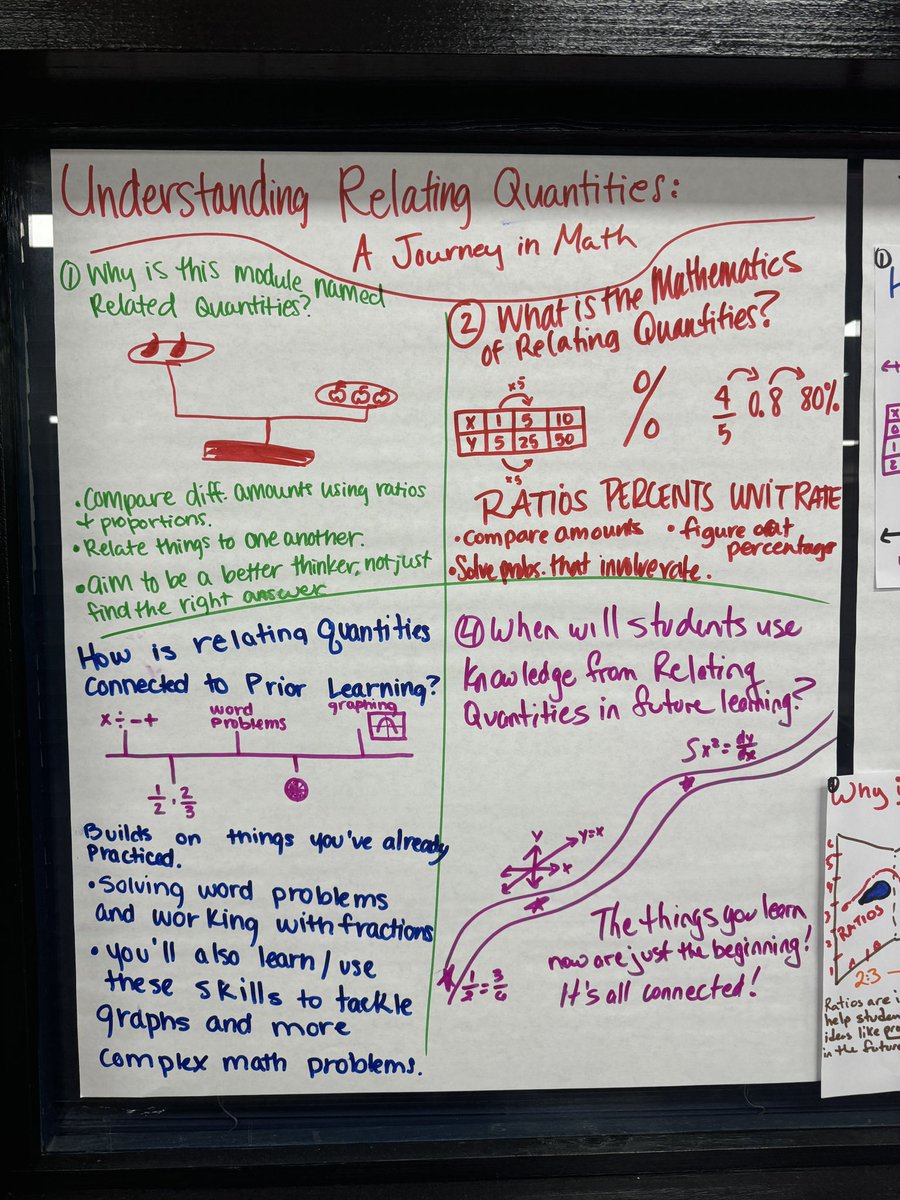 Understanding Relating Quantities:
A Journey in Math
① Why is this module named
Related Quantities?
• Compare diff. amounts using ratios
+ proportions.
• Relate things to one another.
• aim to be a better thinker, not just
find the right answer
② What is the Mathematics
of Relating Quantities?
x5
X 1 5 10
Y 5 25 50
x5
%
4/5 0.8 80%
RATIOS PERCENTS UNIT RATE
• Compare amounts • figure out
percentage
• Solve probs. that involve rate.
How is relating quantities
Connected to Prior Learning?
x ÷ - +
word
Problems
graphing
1/2 · 2/3
Builds on things you've already
Practiced.
• Solving word problems
and working with fractions
• you'll also learn/use
these skills to tackle
graphs and more
complex math problems.
④ When will students use
Knowledge from Relating
Quantities in future learning?
∫x² = dy/dx
Y
y=x
x
1/2 = 3/6
The things you learn
now are just the beginning!
It's all connected!
①
X
0
1
2
Why
6
5
4
3
2
1
RATIOS
2:3
Ratios are
help
ideas like
in the future